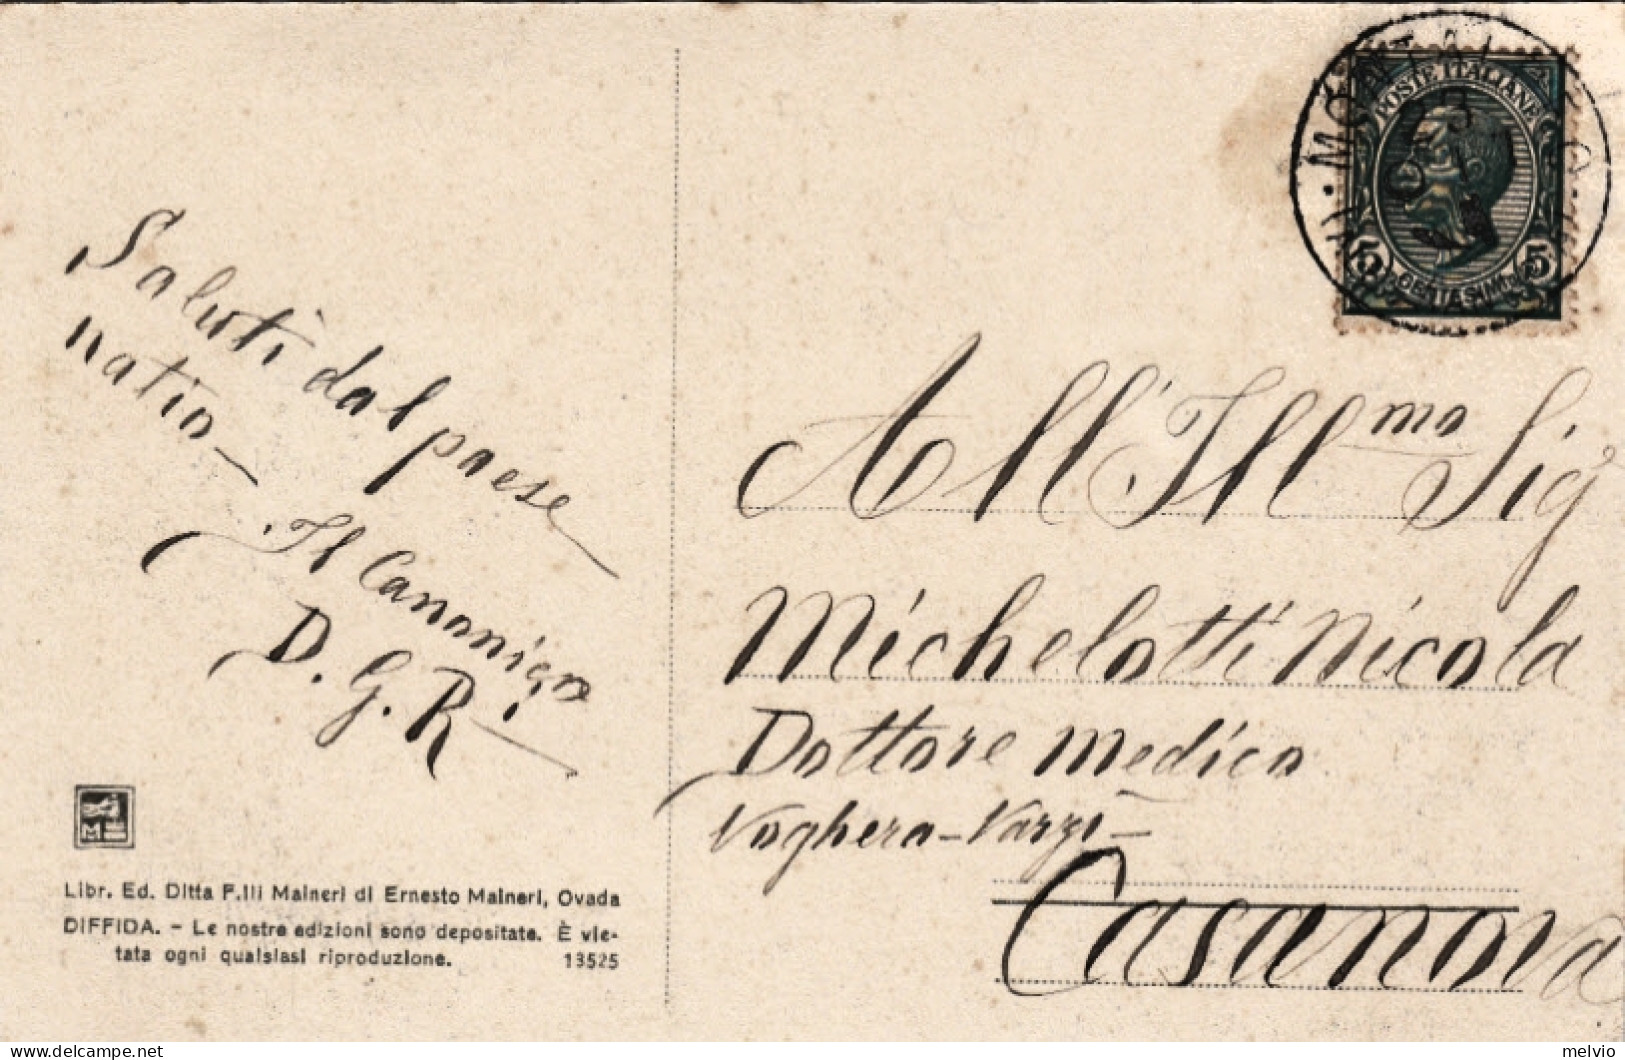 Saluti dal paese
natio –
Il Canonigo
D. G. R.
Libr. Ed. Ditta F.lli Maineri di Ernesto Maineri, Ovada
DIFFIDA. – Le nostre edizioni sono depositate. È vie-
tata ogni qualsiasi riproduzione. 13525
POSTE ITALIANE
5 CENTESIMI 5
All'Ill<sup>mo</sup> Sig
Michelotti Nicola
Dottore medico
Voghera – Varzi –
Casanova
melvio